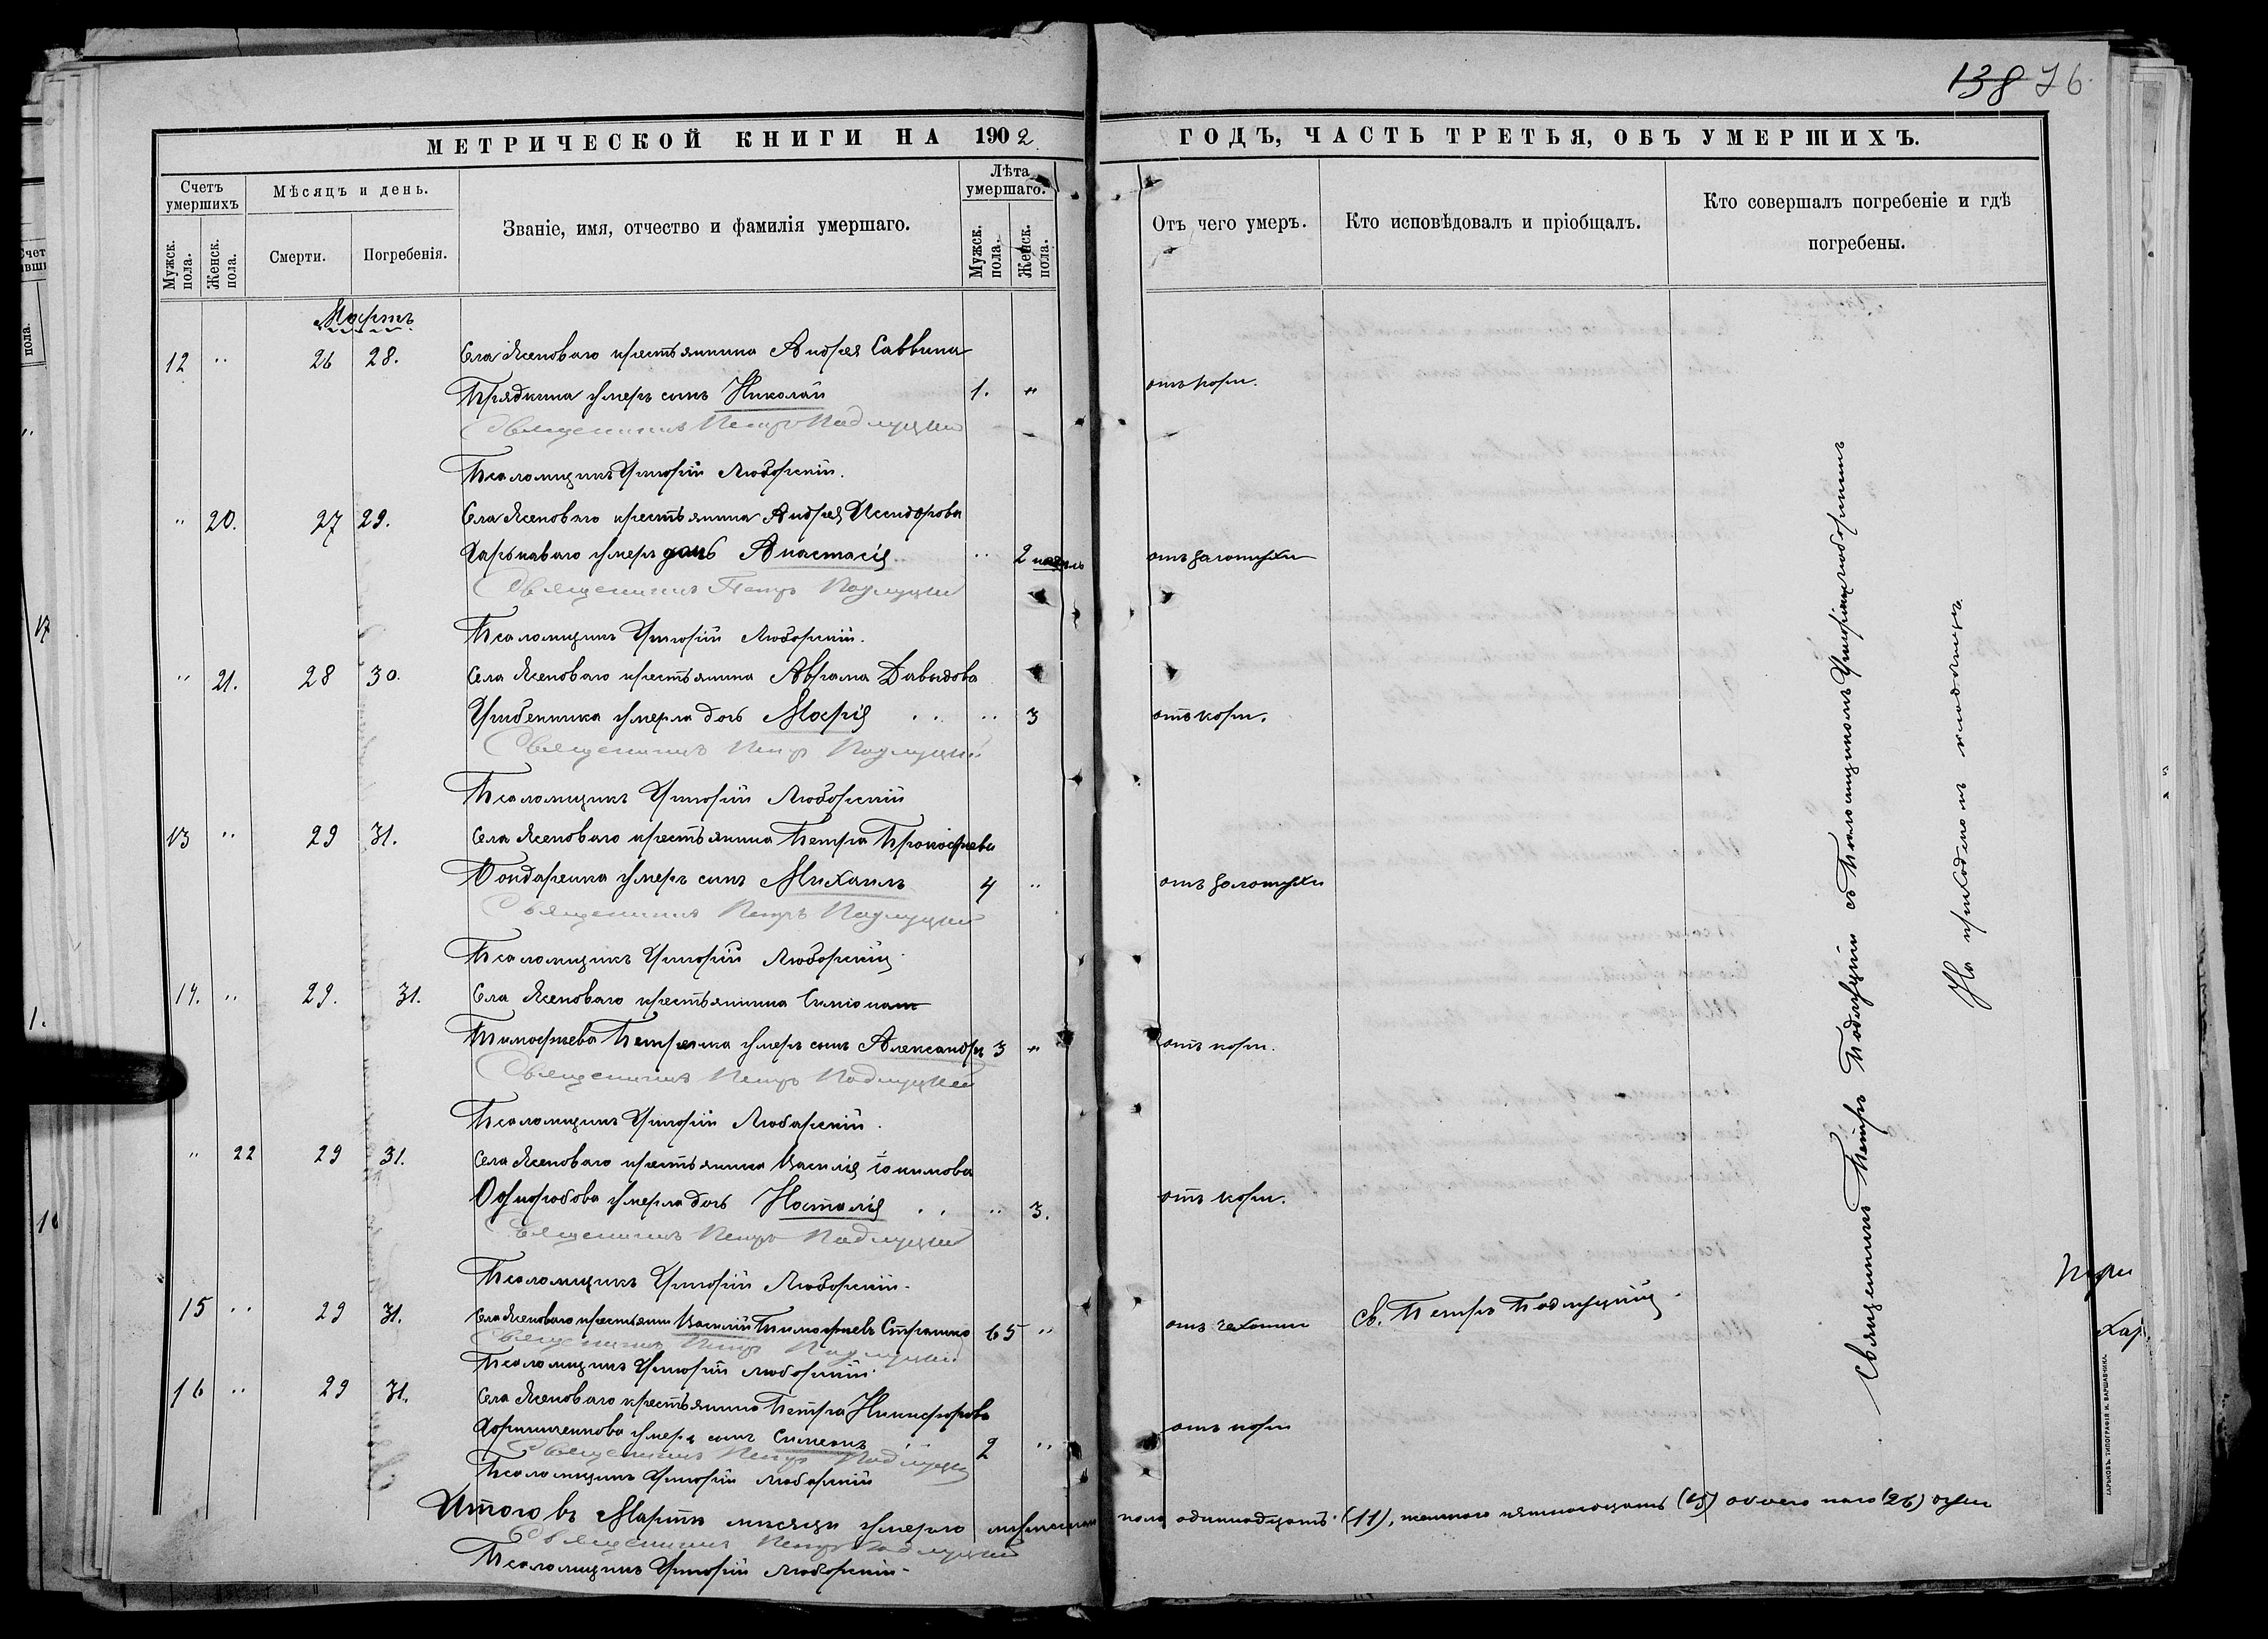 138 76.
МЕТРИЧЕСКОЙ КНИГИ НА 1902
ГОДЪ, ЧАСТЬ ТРЕТЬЯ, ОБЪ УМЕРШИХЪ.
Счетъ умершихъ
Мужск. пола.
Женск. пола.
Мѣсяцъ и день.
Смерти.
Погребенія.
Званіе, имя, отчество и фамилія умершаго.
Лѣта умершаго.
Мужск. пола.
Женск. пола.
Отъ чего умеръ.
Кто исповѣдовалъ и пріобщалъ.
Кто совершалъ погребеніе и гдѣ погребены.
Мартъ
12 " 26 28. Села Ясеноваго крестьянина Андрея Саввина
Прядкина умеръ сынъ Николай 1. " отъ кори.
Священникъ Петръ Подлуцкій
Псаломщикъ Григорій Любарскій.
" 20. 27 29. Села Ясеноваго крестьянина Андрея Исидорова
Харькаваго умер дочь Анастасія " 2 отъ золотухи
Священникъ Петръ Подлуцкій
Псаломщикъ Григорій Любарскій.
" 21. 28 30. Села Ясеноваго крестьянина Аврама Давыдова
Гребенника умерла дочь Марія " 3 отъ кори.
Священникъ Петръ Подлуцкій
Псаломщикъ Григорій Любарскій
13 " 29 31. Села Ясеноваго крестьянина Петра Прокофіева
Бондаренка умеръ сынъ Михаилъ 4 " отъ золотухи
Священникъ Петръ Подлуцкій
Псаломщикъ Григорій Любарскій.
14. " 29. 31. Села Ясеноваго крестьянина
Тимофіева Петренка умеръ сынъ Александръ 3 " отъ кори.
Священникъ Петръ Подлуцкій
Псаломщикъ Григорій Любарскій.
" 22 29 31. Села Ясеноваго крестьянина Василія Іоакимова
умерла дочь Наталія " 3. отъ кори.
Священникъ Петръ Подлуцкій
Псаломщикъ Григорій Любарскій.
15 " 29 31. Села Ясеноваго крестьянин Василій Тимофіевъ Страшко 65 " отъ чахотки Св. Петръ Подлуцкій.
Священникъ Петръ Подлуцкій
Псаломщикъ Григорій Любарскій.
16 " 29 31. Села Ясеноваго крестьянина Петра Никифорова
умеръ сынъ Симеонъ 2 " отъ кори
Священникъ Петръ Подлуцкій
Псаломщикъ Григорій Любарскій
Итого въ Мартѣ мѣсяцѣ умерло мужескаго пола одиннадцать (11), женскаго пятнадцать (15) обоего пола (26)
Священникъ Петръ Подлуцкій
Псаломщикъ Григорій Любарскій.
Священникъ Петръ Подлуцкій съ Псаломщикомъ Григоріемъ Любарскимъ
На приходскомъ кладбищѣ.
ХАРЬКОВЪ. ТИПОГРАФІЯ И. ВАРШАВЧИКА.